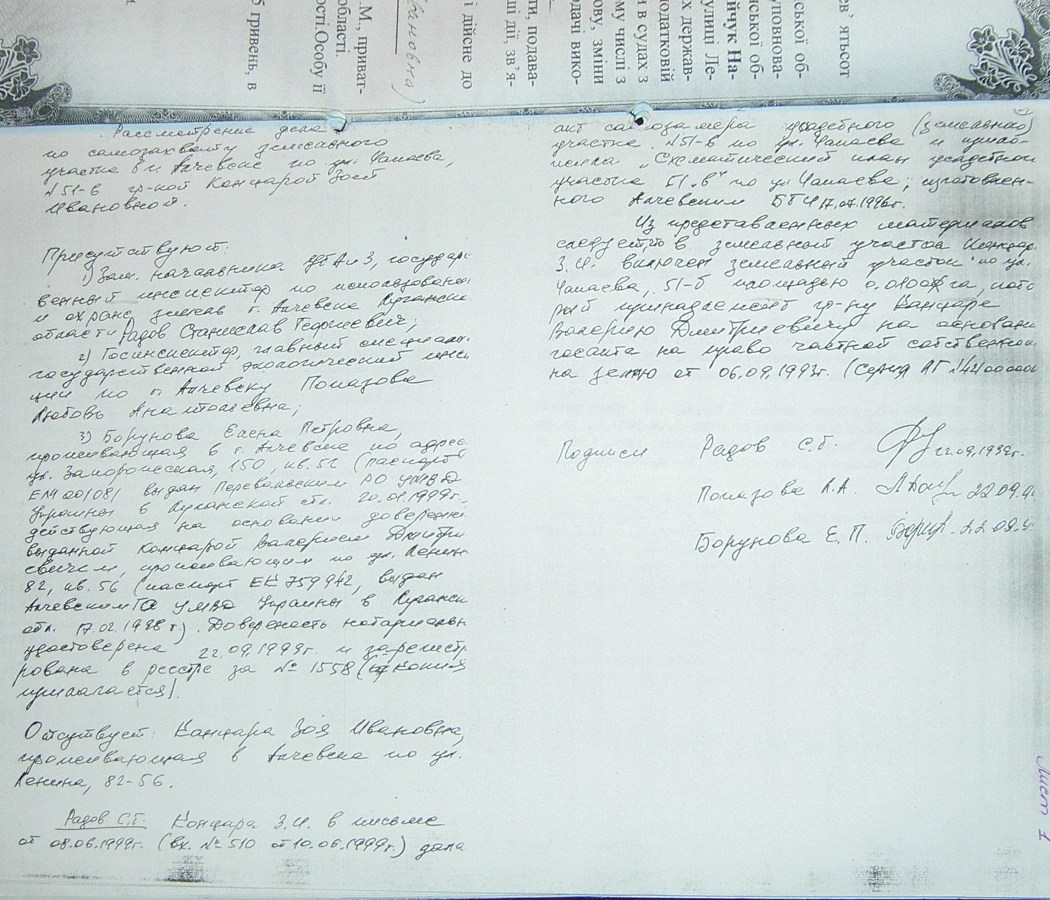 ев' ятьсот
ської об-
уповнова-
нської об-
йчук На-
улиці Ле-
х держав-
податковій
и в судах з
му числі з
ову, зміни
одачі вико-
ти, подава-
ші дії, зв'я-
і дійсне до
вановна)
.М, приват-
області.
ості.Особу її
б гривень, в
Рассмотрение дела
по самозахвату земельного
участка в г. Алчевске по ул. Чапаева,
№51-в гр-кой Канцарой Зоей
Ивановной.
Присутствуют:
1) Зам. начальника государ-
венный инспектор по использован
и охране земель г. Алчевска Луганск
области Радов Станислав Георгиевич;
2) Госинспектор, главный специал
государственной экологической инсп
ции по г. Алчевску Помазова
Любовь Анатольевна;
3) Борунова Елена Петровна,
проживающая в г. Алчевске по адрес
ул. Запорожская, 150, кв. 52 (паспорт
ЕМ 001081 выдан Перевальским РО УМВД
Украины в Луганской обл. 20.01.1999г.
действующая на основании доверенн
выданной Канцарой Валерием Дмитри
евичем, проживающим по ул. Ленин
82, кв. 56 (паспорт ЕК 759942, выдан
Алчевским ГО УМВД Украины в Луганск
обл. 17.02.1998 г.). Доверенность нотариальн
удостоверена 22.09.1999г. и зарегистр
рована в реестре за № 1558 (копия
прилагается).
Отсутствует: Канцара Зоя Ивановна,
проживающая в Алчевске по ул.
Ленина, 82-56.
Радов С.Г. Канцара З.И. в письме
от 08.06.1999г. (вх. № 510 от 10.06.1999г.) дала
акт самозамера усадебного (земельного)
участка №51-в по ул. Чапаева и прило-
жила "Схематический план усадебного
участка 51 "в" по ул. Чапаева; изготовлен-
ного Алчевским БТИ 17.07.1996г.
Из представленных материалов
следует, что в земельный участок Канцар
З.И. включен земельный участок по ул.
Чапаева, 51-б площадью га, кото
рый принадлежит гр-ну Канцаре
Валерию Дмитриевичу на основан
госакта на право частной собственнос
на землю от 06.09.1999г. (Серия
Подписи Радов С.Г. 22.09.1999г.
Помазова Л.А. 22.09.9
Борунова Е.П. 22.09.9
Лист 1